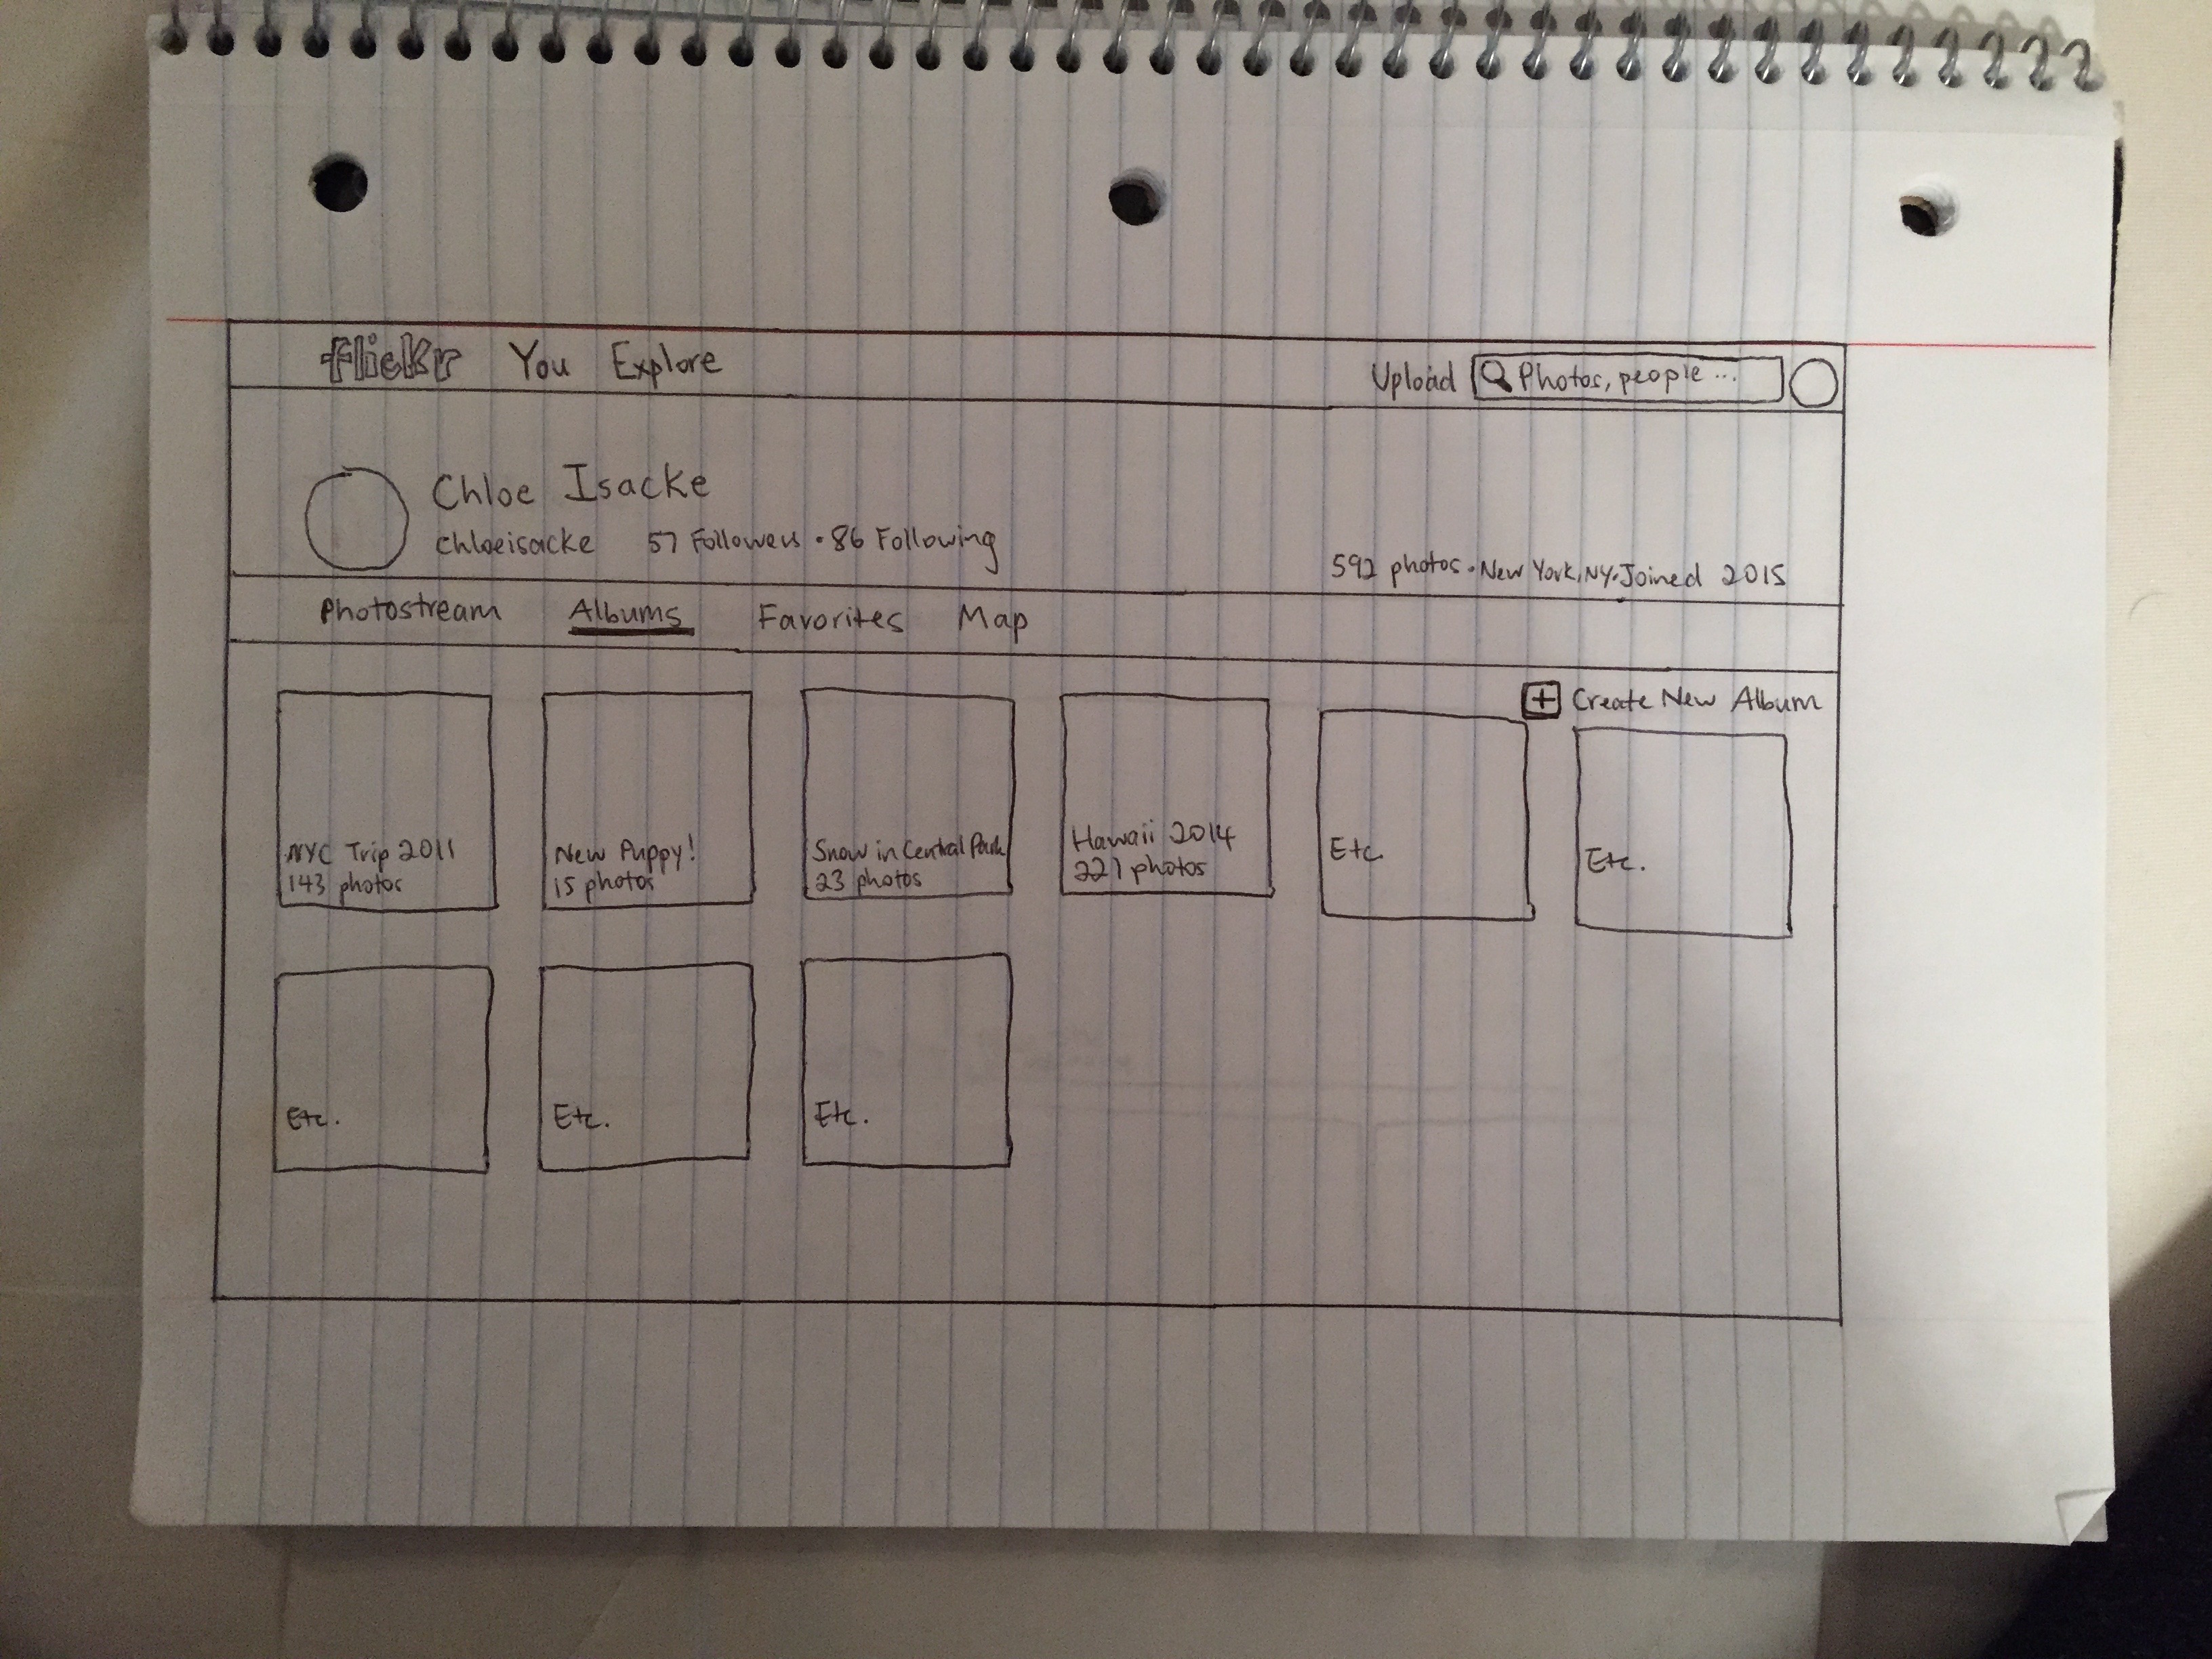 flickr You Explore Upload Photos, people ...
Chloe Isacke
chloeisacke 57 Followers · 86 Following
592 photos · New York, NY · Joined 2015
Photostream Albums Favorites Map
+ Create New Album
NYC Trip 2011
143 photos
New Puppy!
15 photos
Snow in Central Park
23 photos
Hawaii 2014
221 photos
Etc.
Etc.
Etc.
Etc.
Etc.